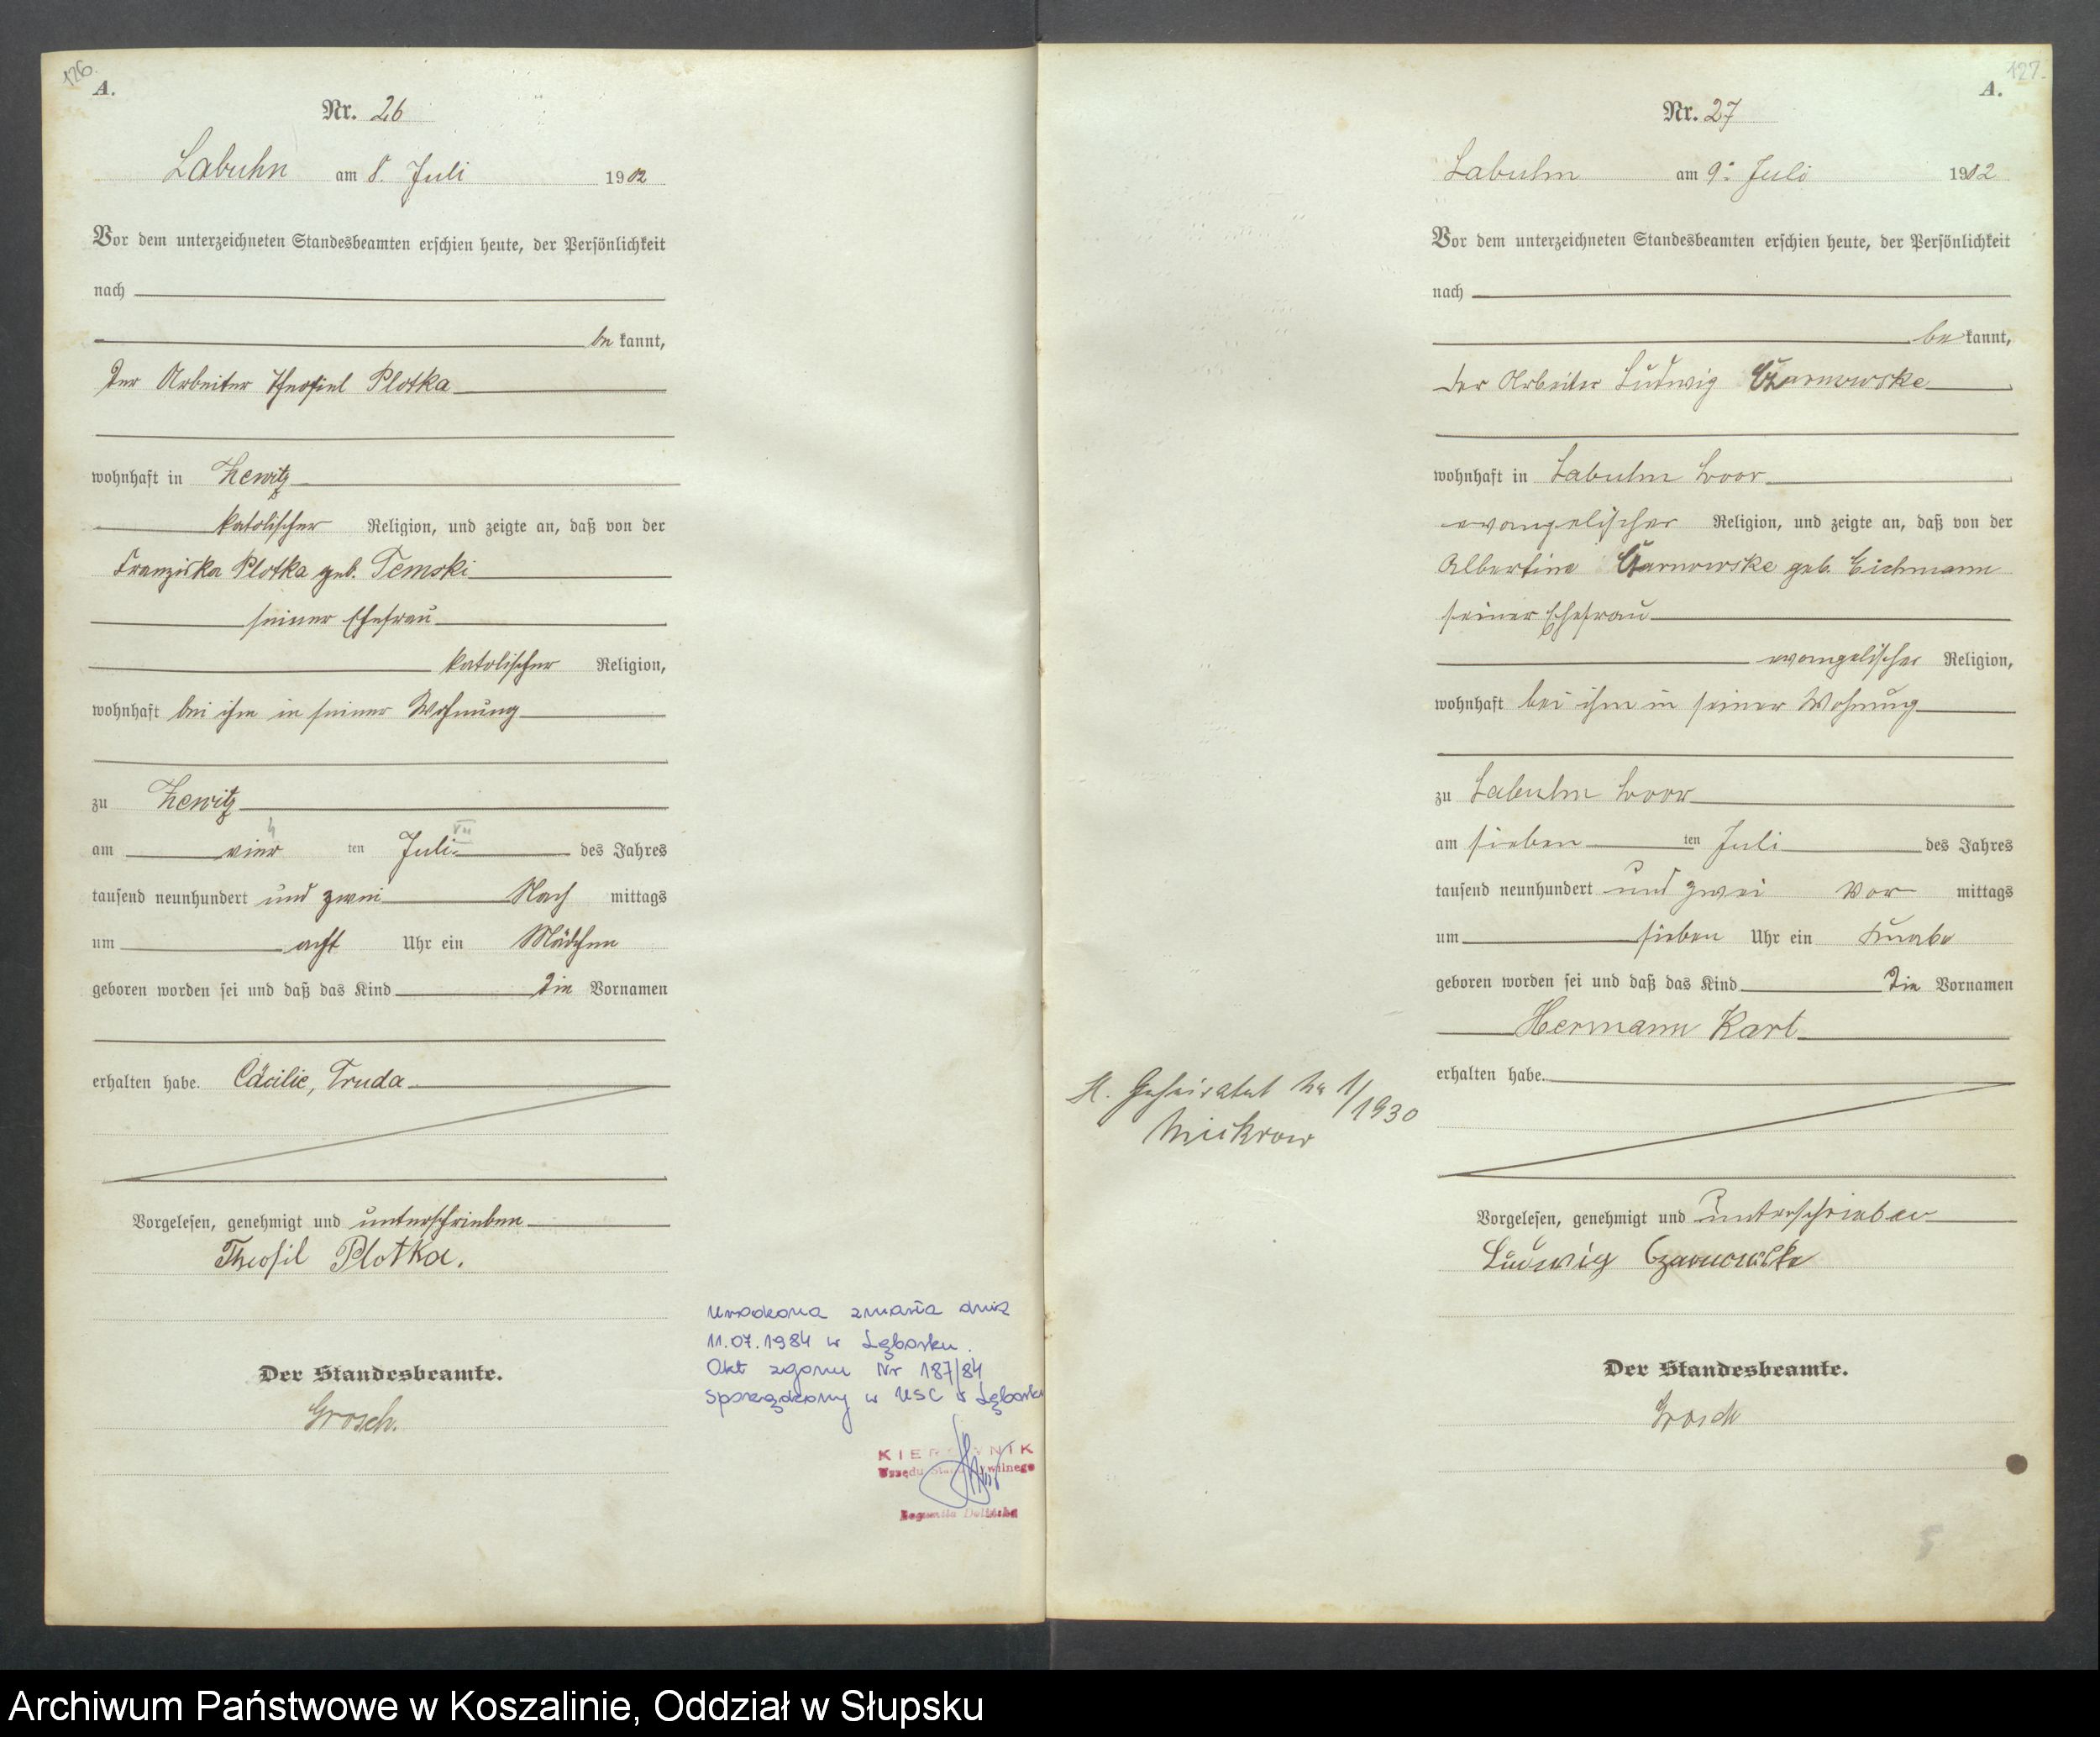 126.
A.
Nr. 26
Labuhn am 8. Juli 1902
Vor dem unterzeichneten Standesbeamten erschien heute, der Persönlichkeit
nach
be kannt,
der Arbeiter Theofiel Plotka
wohnhaft in Zewitz
katolischer Religion, und zeigte an, daß von der
Franziska Plotka geb. Temski
seiner Ehefrau
katolischer Religion,
wohnhaft bei ihm in seiner Wohnung
zu Zewitz
4 VII
am vier ten Juli des Jahres
tausend neunhundert und zwei Nach mittags
um acht Uhr ein Mädchen
geboren worden sei und daß das Kind die Vornamen
erhalten habe. Cäcilie, Truda
Vorgelesen, genehmigt und unterschrieben
Theofil Plotka.
Der Standesbeamte.
Grosch.
Urodzona zmarła dnia
11.07.1984 w Lęborku.
Akt zgonu Nr 187/84
sporządzony w USC w Lęborku
KIEROWNIK
Urzędu Stanu Cywilnego
127.
A.
Nr. 27
Labuhn am 9. Juli 1902
Vor dem unterzeichneten Standesbeamten erschien heute, der Persönlichkeit
nach
be kannt,
der Arbeiter Ludwig Czarnowske
wohnhaft in Labuhn
evangelischer Religion, und zeigte an, daß von der
Albertine Czarnowske geb. Eichmann
seiner Ehefrau
evangelischer Religion,
wohnhaft bei ihm in seiner Wohnung
zu Labuhn
am sieben ten Juli des Jahres
tausend neunhundert und zwei Vor mittags
um sieben Uhr ein Knabe
geboren worden sei und daß das Kind die Vornamen
Hermann Karl
erhalten habe.
Vorgelesen, genehmigt und unterschrieben
Ludwig Czarnowske
Der Standesbeamte.
Grosch
H. Geheiratet 1/1930
Mickrow
5
Archiwum Państwowe w Koszalinie, Oddział w Słupsku